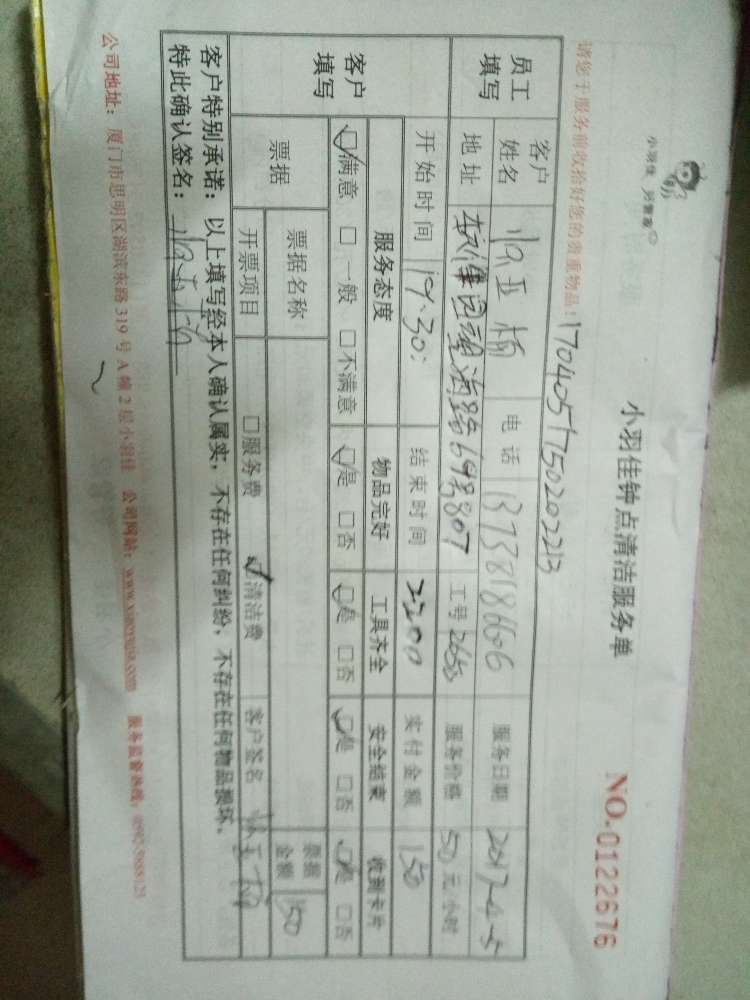 小羽佳钟点清洁服务单
NO. 0122676
小羽佳
请您于服务前收拾好您的贵重物品! 1704051750202213
员工填写 客户姓名 电话 13738186606 服务日期 2017-4-5
地址 648 807 工号 2650 服务价格 50 元/小时
开始时间 19.30: 结束时间 2200 实付金额 150
客户填写 服务态度 物品完好 工具齐全 安全结束 收到卡片
☑满意 □一般 □不满意 ☑是 □否 ☑是 □否 ☑是 □否 ☑是 □否
票据 票据名称 票据金额 150
开票项目 □服务费 ☑清洁费 客户签名
客户特别承诺:以上填写经本人确认属实,不存在任何纠纷,不存在任何物品损坏。
特此确认签名:
公司地址:厦门市思明区湖滨东路 319 号 A 幢 2 层小羽佳 公司网站:www.xiaoyujia.com 服务监督热线: